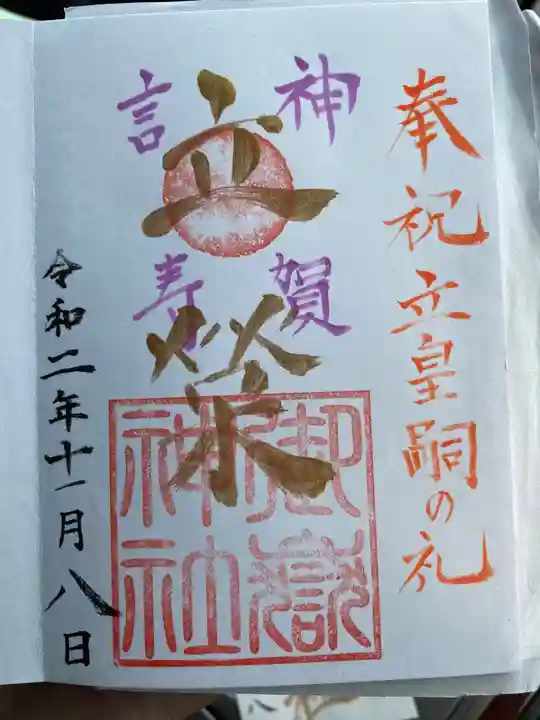 奉祝立皇嗣の礼
神賀
言寿
立栄
御嶽
神社
令和二年十一月八日